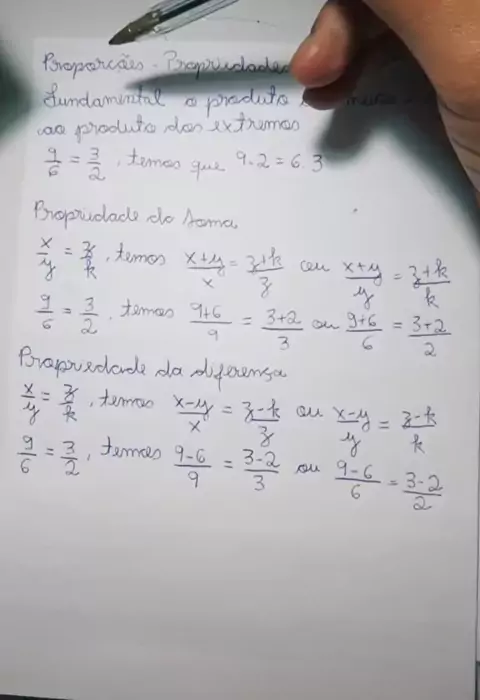 Proporções - Propriedades
Fundamental o produto
ao produto dos extremos
9/6 = 3/2, temos que 9.2 = 6.3
Propriedade da Soma
x/y = z/k, temos x+y/x = z+k/z ou x+y/y = z+k/k
9/6 = 3/2, temos 9+6/9 = 3+2/3 ou 9+6/6 = 3+2/2
Propriedade da diferença
x/y = z/k, temos x-y/x = z-k/z ou x-y/y = z-k/k
9/6 = 3/2, temos 9-6/9 = 3-2/3 ou 9-6/6 = 3-2/2